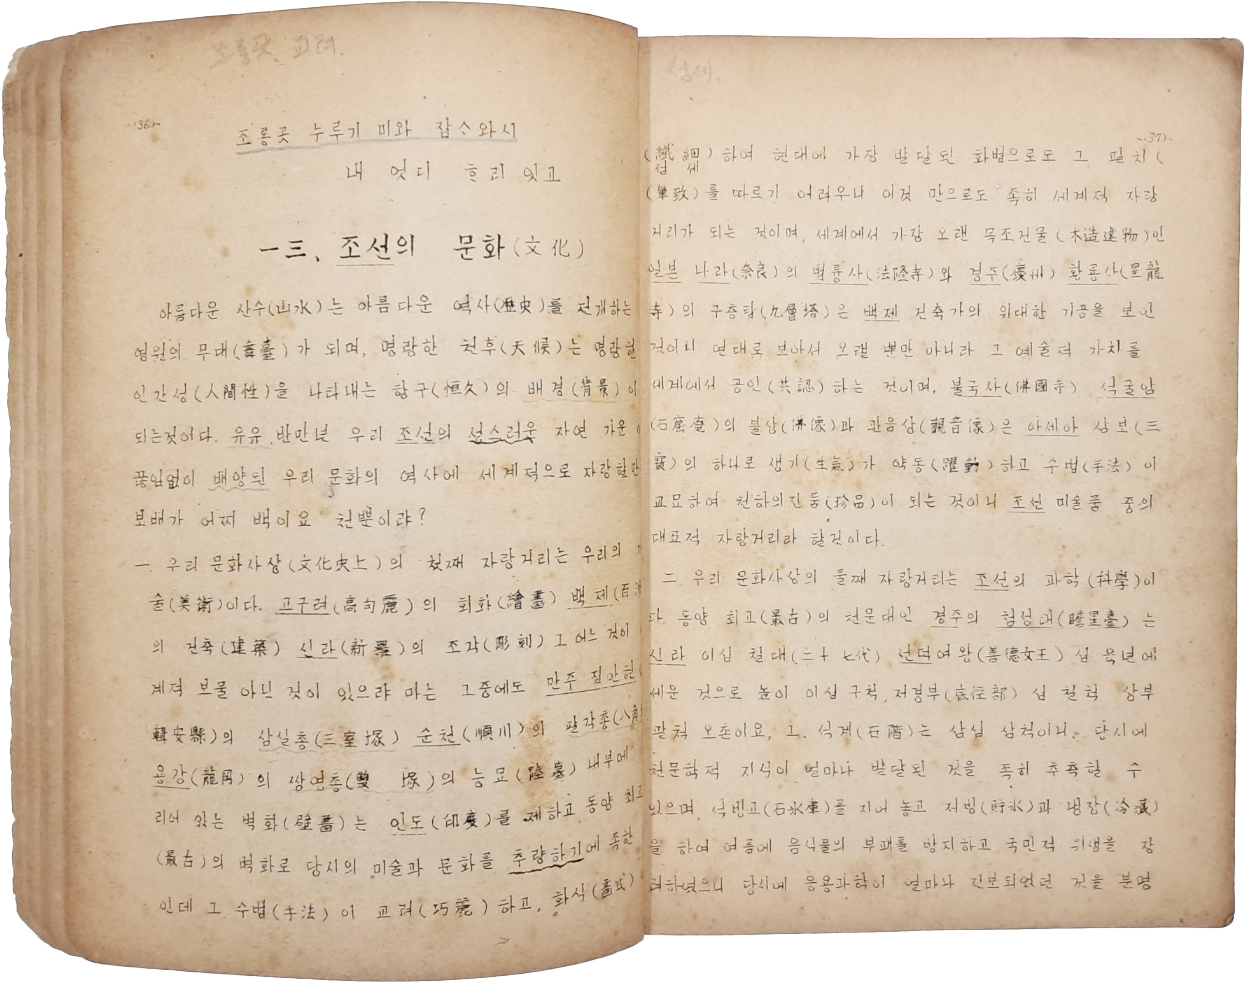 조롱곳 교려.
-36-
조롱곳 누루기 미와 잡스와시
내 엇디 흐리 잇고
一三、조선의 문화(文化)
아름다운 산수(山水)는 아름다운 역사(歷史)를 전개하는
영원의 무대(舞臺)가 되며, 명랑한 천후(天候)는 명랑한
인간성(人間性)을 나타내는 항구(恒久)의 배경(背景)이
되는것이다. 유유 반만년 우리 조선의 성스러운 자연 가운
끊임없이 배양된 우리 문화의 여사에 세계적으로 자랑할만
보배가 어찌 백이요 천뿐이랴?
一. 구리 문화사상(文化史上)의 첫째 자랑거리는 우리의
술(美術)이다. 고구려(高句麗)의 회화(繪畵) 백제(百
의 건축(建築) 신라(新羅)의 조각(彫刻) 그어느 것이
계적 보물 아닌 것이 있으랴 마는 그중에도 만주 집안현(
輯安縣)의 삼실총(三室塚) 순천(順川)의 팔각총(八角
용강(龍岡)의 쌍영총(雙 塚)의 능묘(陸墓) 내부에
리어 있는 벽화(壁畵)는 인도(印度)를 제하고 동양 최고
(最古)의 벽화로 당시의 미술과 문화를 추량하기에 족한
인데 그 수법(手法)이 교려(巧麗)하고, 화식(畵式)
섬세.
-37-
(纖細)하여 현대에 가장 발달된 화법으로도 그 필치(
섬 세
(筆致)를 따르기 어려우나 이것 만으로도 족히 세계적 자랑
거리가 되는 것이며, 세계에서 가장 오랜 목조건물(木造建物)인
일본 나라(奈良)의 법륭사(法隆寺)와 경주(慶州) 황룡사(皇龍
寺)의 구층탑(九層塔)은 백제 건축가의 위대한 기공을 보인
것이니 연대로 보아서 오랠 뿐만 아니라 그 예술적 가치를
세계에서 공인(共認)하는 것이며, 불국사(佛國寺) 석굴암
(石窟庵)의 불상(佛像)과 관음상(觀音像)은 아세아 삼보(三
寶)의 하나로 생기(生氣)가 약동(躍動)하고 수법(手法)이
교묘하여 천하의진품(珍品)이 되는 것이니 조선 미술품 중의
대표적 자랑거리라 할것이다.
二 우리 문화사상의 둘째 자랑거리는 조선의 과학(科學)이
다. 동양 최고(最古)의 천문대인 경주의 첨성대(瞻星臺)는
신라 이십 칠대(二十七代) 선덕여왕(善德女王) 십 육년에
세운 것으로 높이 이십 구척, 저경부(底徑部) 십 칠척 상부
팔척 오촌이요, 그. 석계(石階)는 삼십 삼척이니. 당시에
천문학적 지식이 얼마나 발달된 것을 족히 추측할 수
있으며, 석빙고(石氷庫)를 지어 놓고 저빙(貯氷)과 냉장(冷藏)
을 하여 여름에 음식물의 부패를 방지하고 국민적 위생을 장
려하였으니 당시에 응용과학이 얼마나 진보되었던 것을 분명